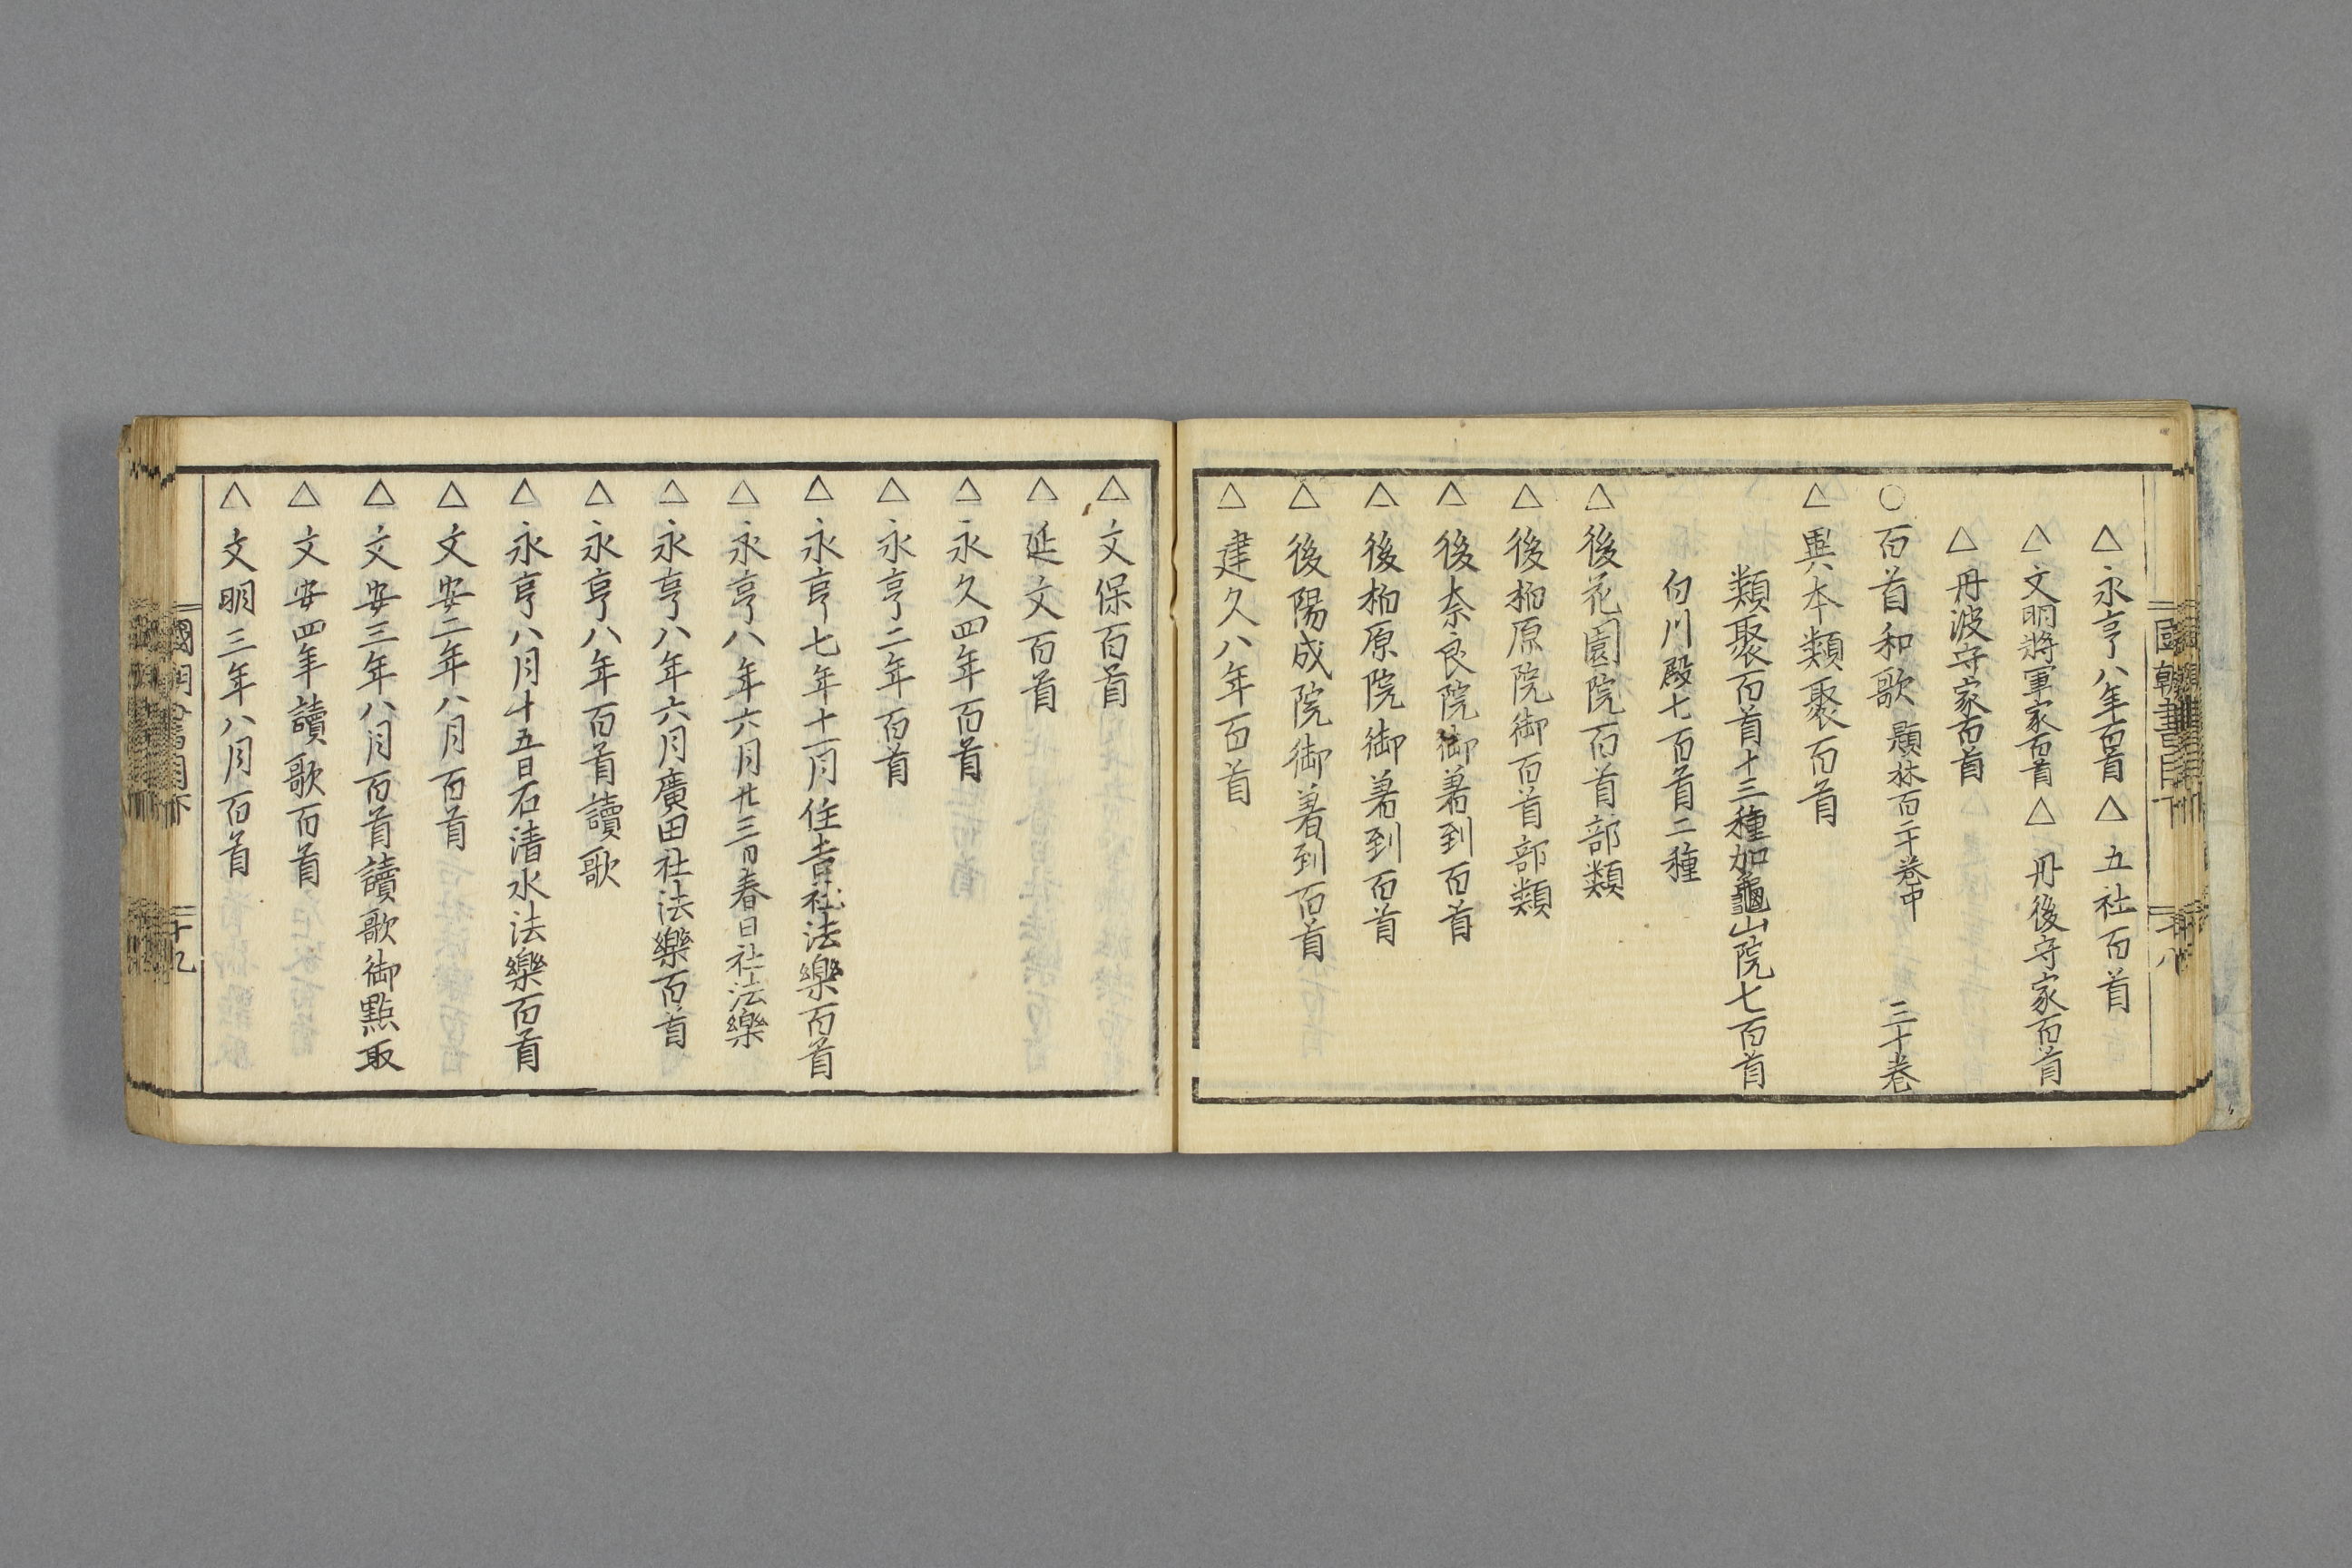 國朝書目下
△永亨八年百首△五社百首
△文明將軍家百首△丹後守家百首
△丹波守家百首
○百首和歌 類林百二十卷中 三十卷
△異本類聚百首
類聚百首十三種加龜山院七百首
白川殿七百首二種
△後花園院百首部類
△後柏原院御百首部類
△後奈良院御着到百首
△後柏原院御着到百首
△後陽成院御着到百首
△建久八年百首
△文保百首
△延文百首
△永久四年百首
△永亨二年百首
△永亨七年十一月住吉社法樂百首
△永亨八年六月廿三日春日社法樂
△永亨八年六月廣田社法樂百首
△永亨八年百首讀歌
△永亨八月十五日石清水法樂百首
△文安二年八月百首
△文安三年八月百首讀歌御點取
△文安四年讀歌百首
△文明三年八月百首
十九